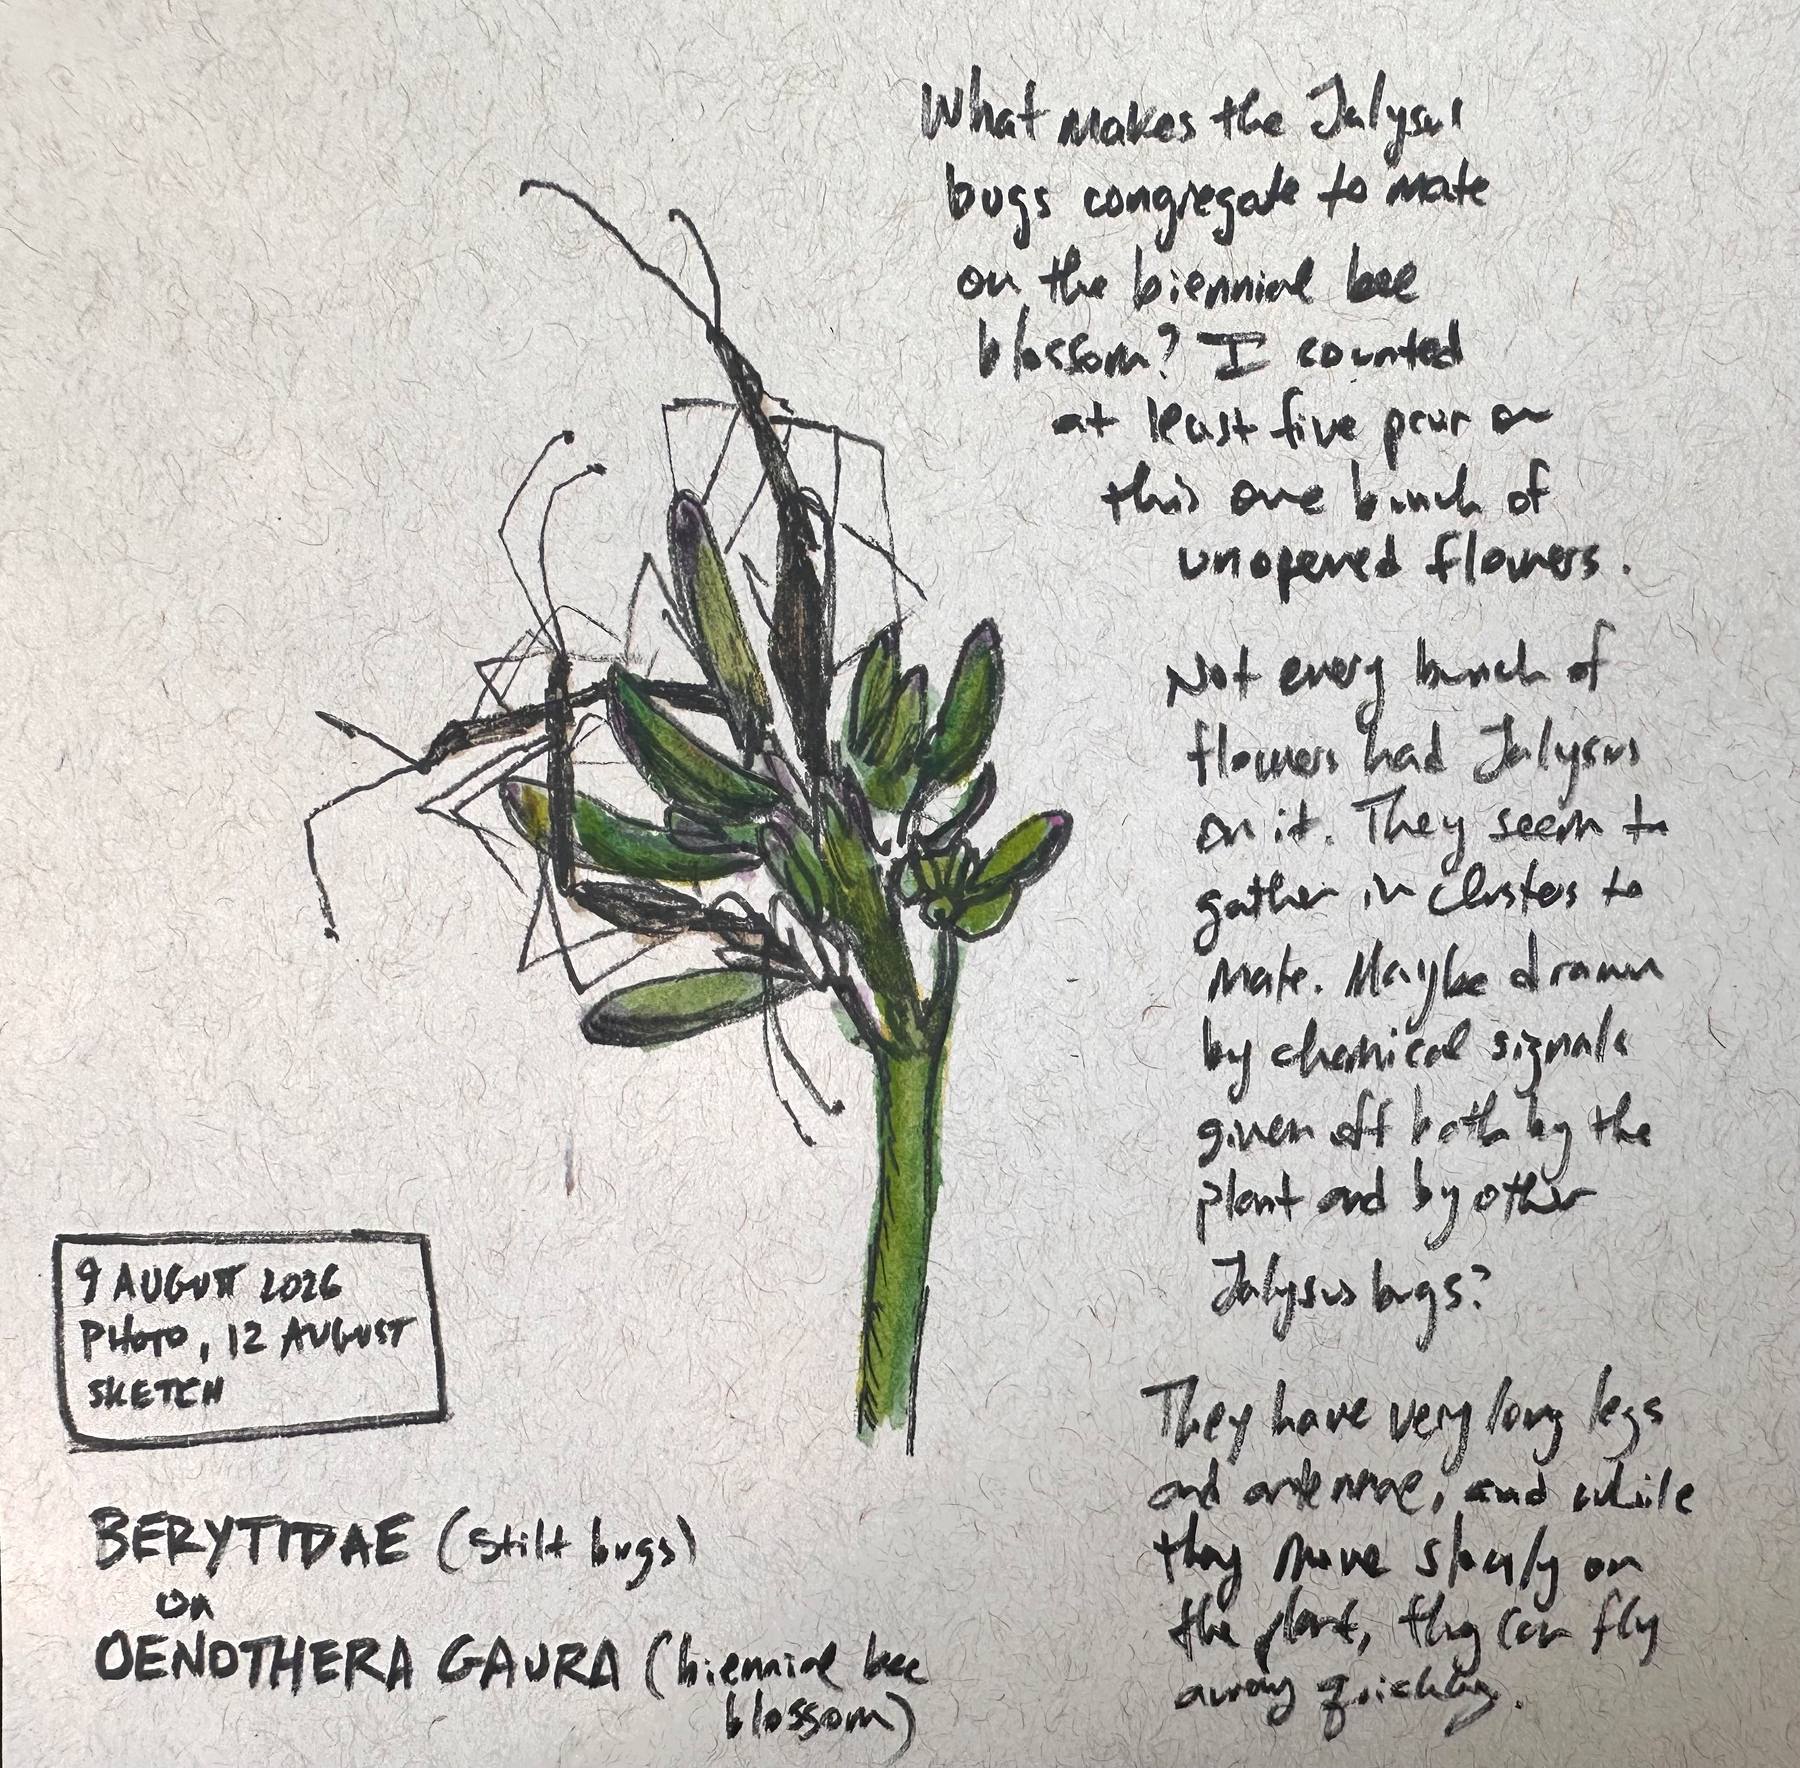 What makes the Jalysus
bugs congregate to mate
on the biennial bee
blossom? I counted
at least five pair on
this one bunch of
unopened flowers.
Not every bunch of
flowers had Jalysus
on it. They seem to
gather in clusters to
mate. Maybe drawn
by chemical signals
given off both by the
plant and by other
Jalysus bugs?
They have very long legs
and antennae, and while
they move slowly on
the plant, they can fly
away quickly.
9 AUGUST 2026
PHOTO, 12 AUGUST
SKETCH
BERYTIDAE (stilt bugs)
on
OENOTHERA GAURA (biennial bee
blossom)